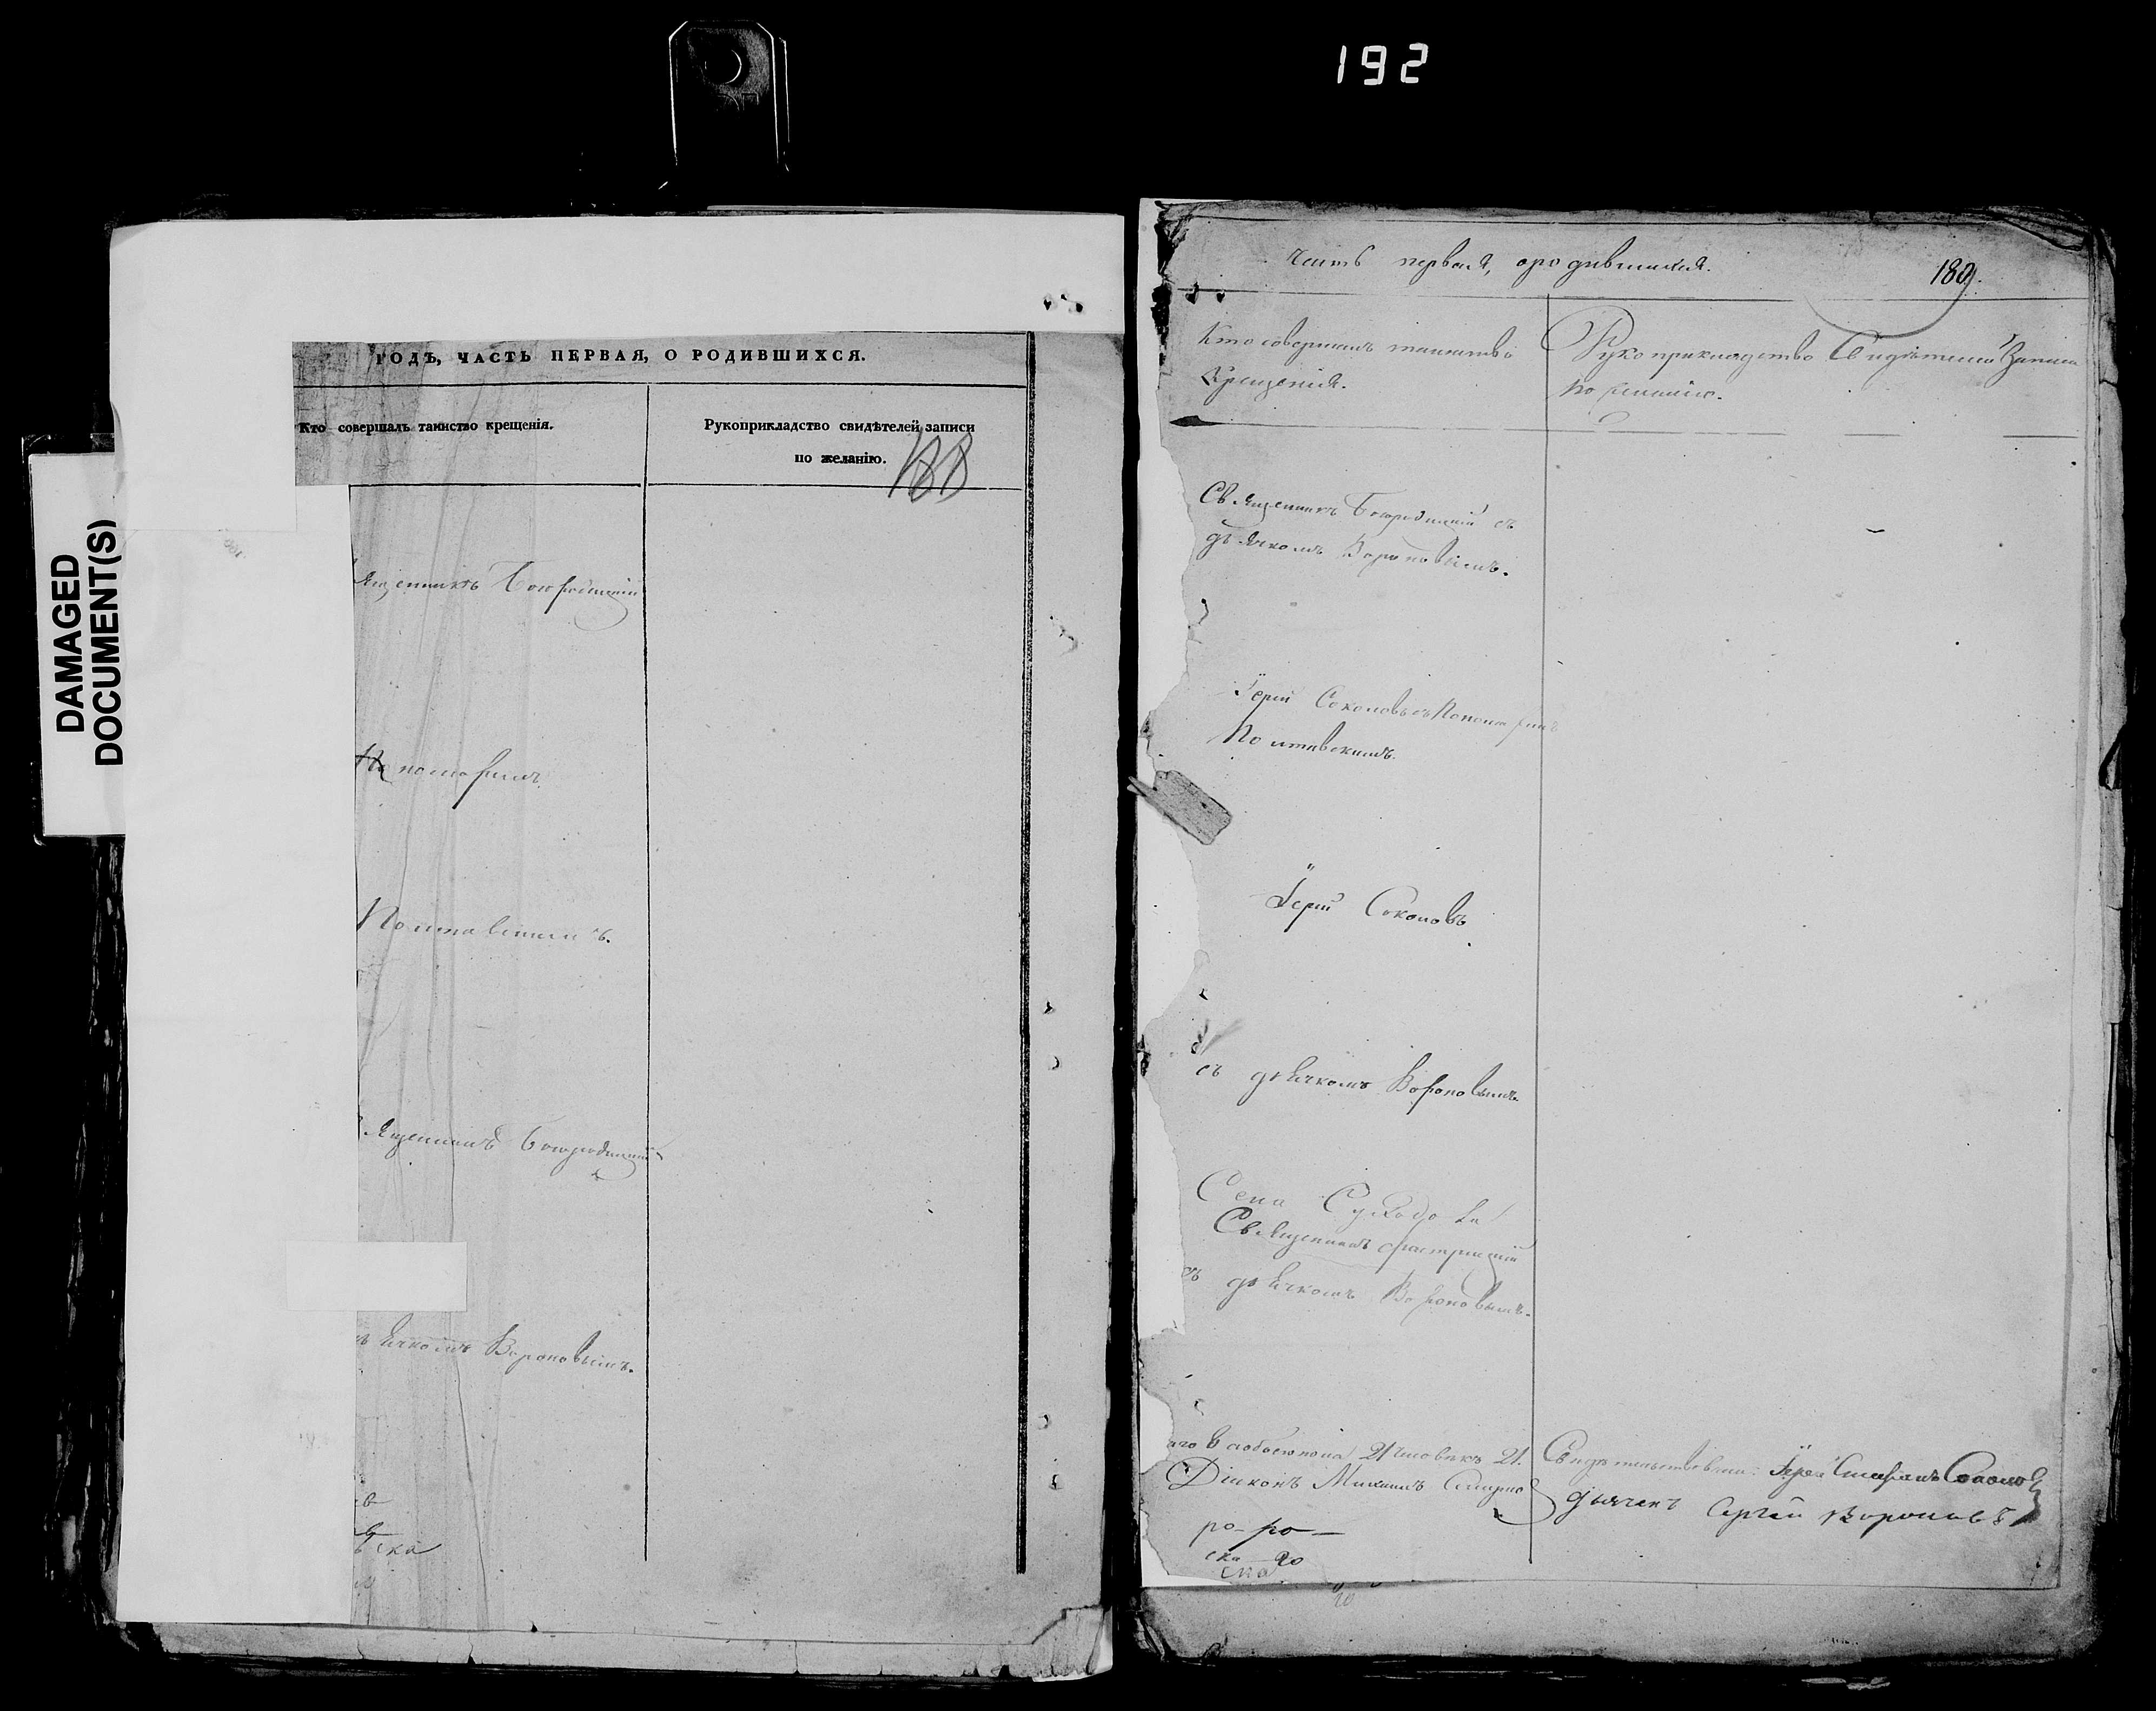 192
DAMAGED
DOCUMENT(S)
ГОДЪ, ЧАСТЬ ПЕРВАЯ, О РОДИВШИХСЯ.
Кто совершалъ таинство крещенія.
Рукоприкладство свидѣтелей записи
по желанію.
188
ященникъ Богородицкій
Понамаремъ
Полтавскимъ.
ященникъ Богородицкій
ячкомъ Вороновымъ.
ска
Часть первая, о родившихся.
189.
Кто совершалъ таинство
Крещенія.
Рукоприкладство Свидѣтелей Записи
по желанію.
Священникъ Богородицкій съ
дьячкомъ Вороновымъ.
Іерей Соколовъ съ Понамаремъ
Полтавскимъ.
Іерей Соколовъ
съ дьячкомъ Вороновымъ
Села
Священникъ
съ дьячкомъ Вороновымъ.
обоего пола 21 человѣкъ 21.
Діаконъ Михаилъ Смирно
ро- ро-
ска 20
ска
20
Свидѣтельствовали: Іерей Стефанъ Соколов
дьячекъ Сергей Вороновъ